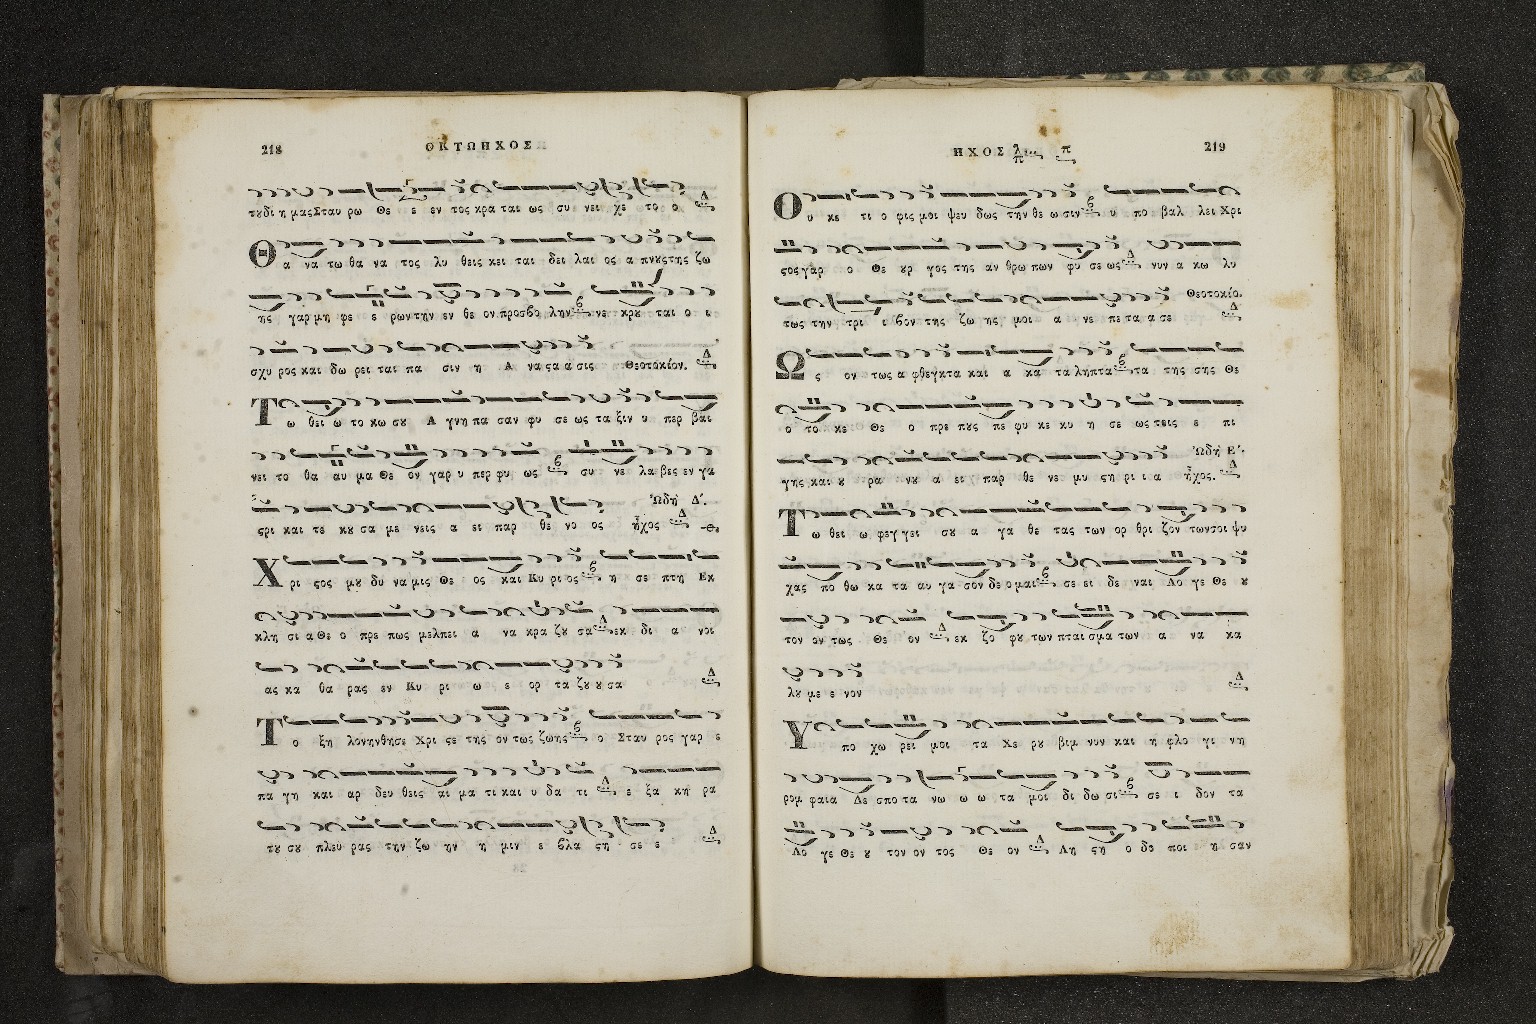 218
ΟΚΤΩΗΧΟΣ
τȣ δι η μας Σταυ ρω Θε ε εν τος κρα ται ως συ νει χε το ο Δ
Θα να τω θα να τος λυ θεις κει ται δει λαι ος α πνȣς της ζω
ης γαρ μη φε ε ρων την εν θε ον προσ βο λην νε κρȣ ται ο ι
σχυ ρος και δω ρει ται πα σιν η Α να ϛα α σις Θεοτοκίον. Δ
Τω θει ω το κω σȣ Α γνη πα σαν φυ σε ως τα ξιν υ περ βαι
νει το θα αυ μα Θε ον γαρ υ περ φυ ως συ νε λα βες εν γα
ϛρι και τε κȣ σα με νεις α ει παρ θε νο ος Ὠδὴ Δ΄. ἦχος Δ
Χρι ϛος μȣ δυ να μις Θε ος και Κυ ρι ος η σε πτη Εκ
κλη σι α Θε ο πρε πως μελ πει α να κρα ζȣ σα Δ εκ δι α νοι
ας κα θα ρας εν Κυ ρι ω ε ορ τα ζȣ ȣ σα Δ
Το ξη λον ην θη σε Χρι ϛε της ον τως ζωης ο Σταυ ρος γαρ ε
πα γη και αρ δευ θεις αι μα τι και υ δα τι Δ ε ξα κη ρα
τȣ σȣ πλευ ρας την ζω ην η μιν ε βλα ϛη σε ε Δ
ΗΧΟΣ λ π π
219
Ου κε τι ο φις μοι ψευ δως την θε ω σιν υ πο βαλ λει Χρι
ϛος γαρ ο Θε ȣρ γος της αν θρω πων φυ σε ως Δ νυν α κω λυ
τως την τρι ι βον της ζω ης μοι α νε πε τα α σε Θεοτοκίο. Δ
Ως ον τως α φθεγκτα και α κα τα ληπτα τα της σης Θε
ο το κε Θε ο πρε πȣς πε φυ κε κυ η σε ως τεις ε πι
γης και ȣ ρα νȣ α ει παρ θε νε μυ ϛη ρι ι α Ὠδὴ Ε΄. ἦχος. Δ
Τω θει ω φεγ γει σȣ α γα θε τας των ορ θρι ζον των σοι ψυ
χας πο θω κα τα αυ γα σον δε ο μαι σε ει δε ναι Λο γε Θε ȣ
τον ον τως Θε ον Δ εκ ζο φȣ των πται σμα των α να κα
λȣ με ε νον Δ
Υπο χω ρει μοι τα Χε ρȣ βιμ νυν και η φλο γι νη
ρομ φαια Δε σπο τα νω ω ω τα μοι δι δω σι σε ι δον τα
Λο γε Θε ȣ τον ον τος Θε ον Δ Λη ϛη ο δο ποι η σαν